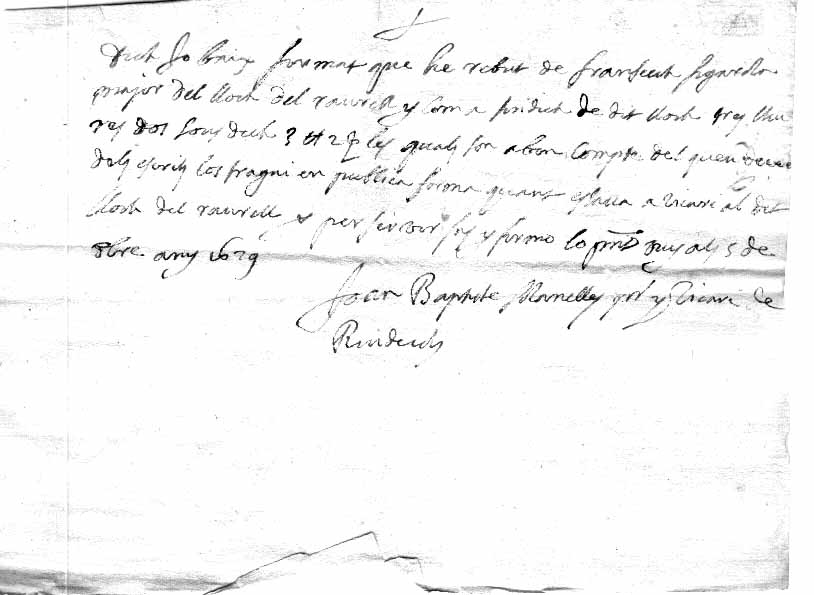 Dich jo baix firmat que he rebut de Francesch
major del lloch del rourell y com a sindich de dit lloch tres lliu
res dos sous dich 3 ll 2 ß les quals son a bon compte del que
dels escrits los fragui en publica forma quant estava a vicari al dit
lloch del rourell y per ser ver fas y firmo lo pnt vuy als 5 de
8bre any 1629
Joan Baptista pre y Vicari de
Riudecols